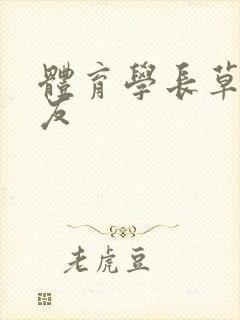 體育學長草
友
老虎豆